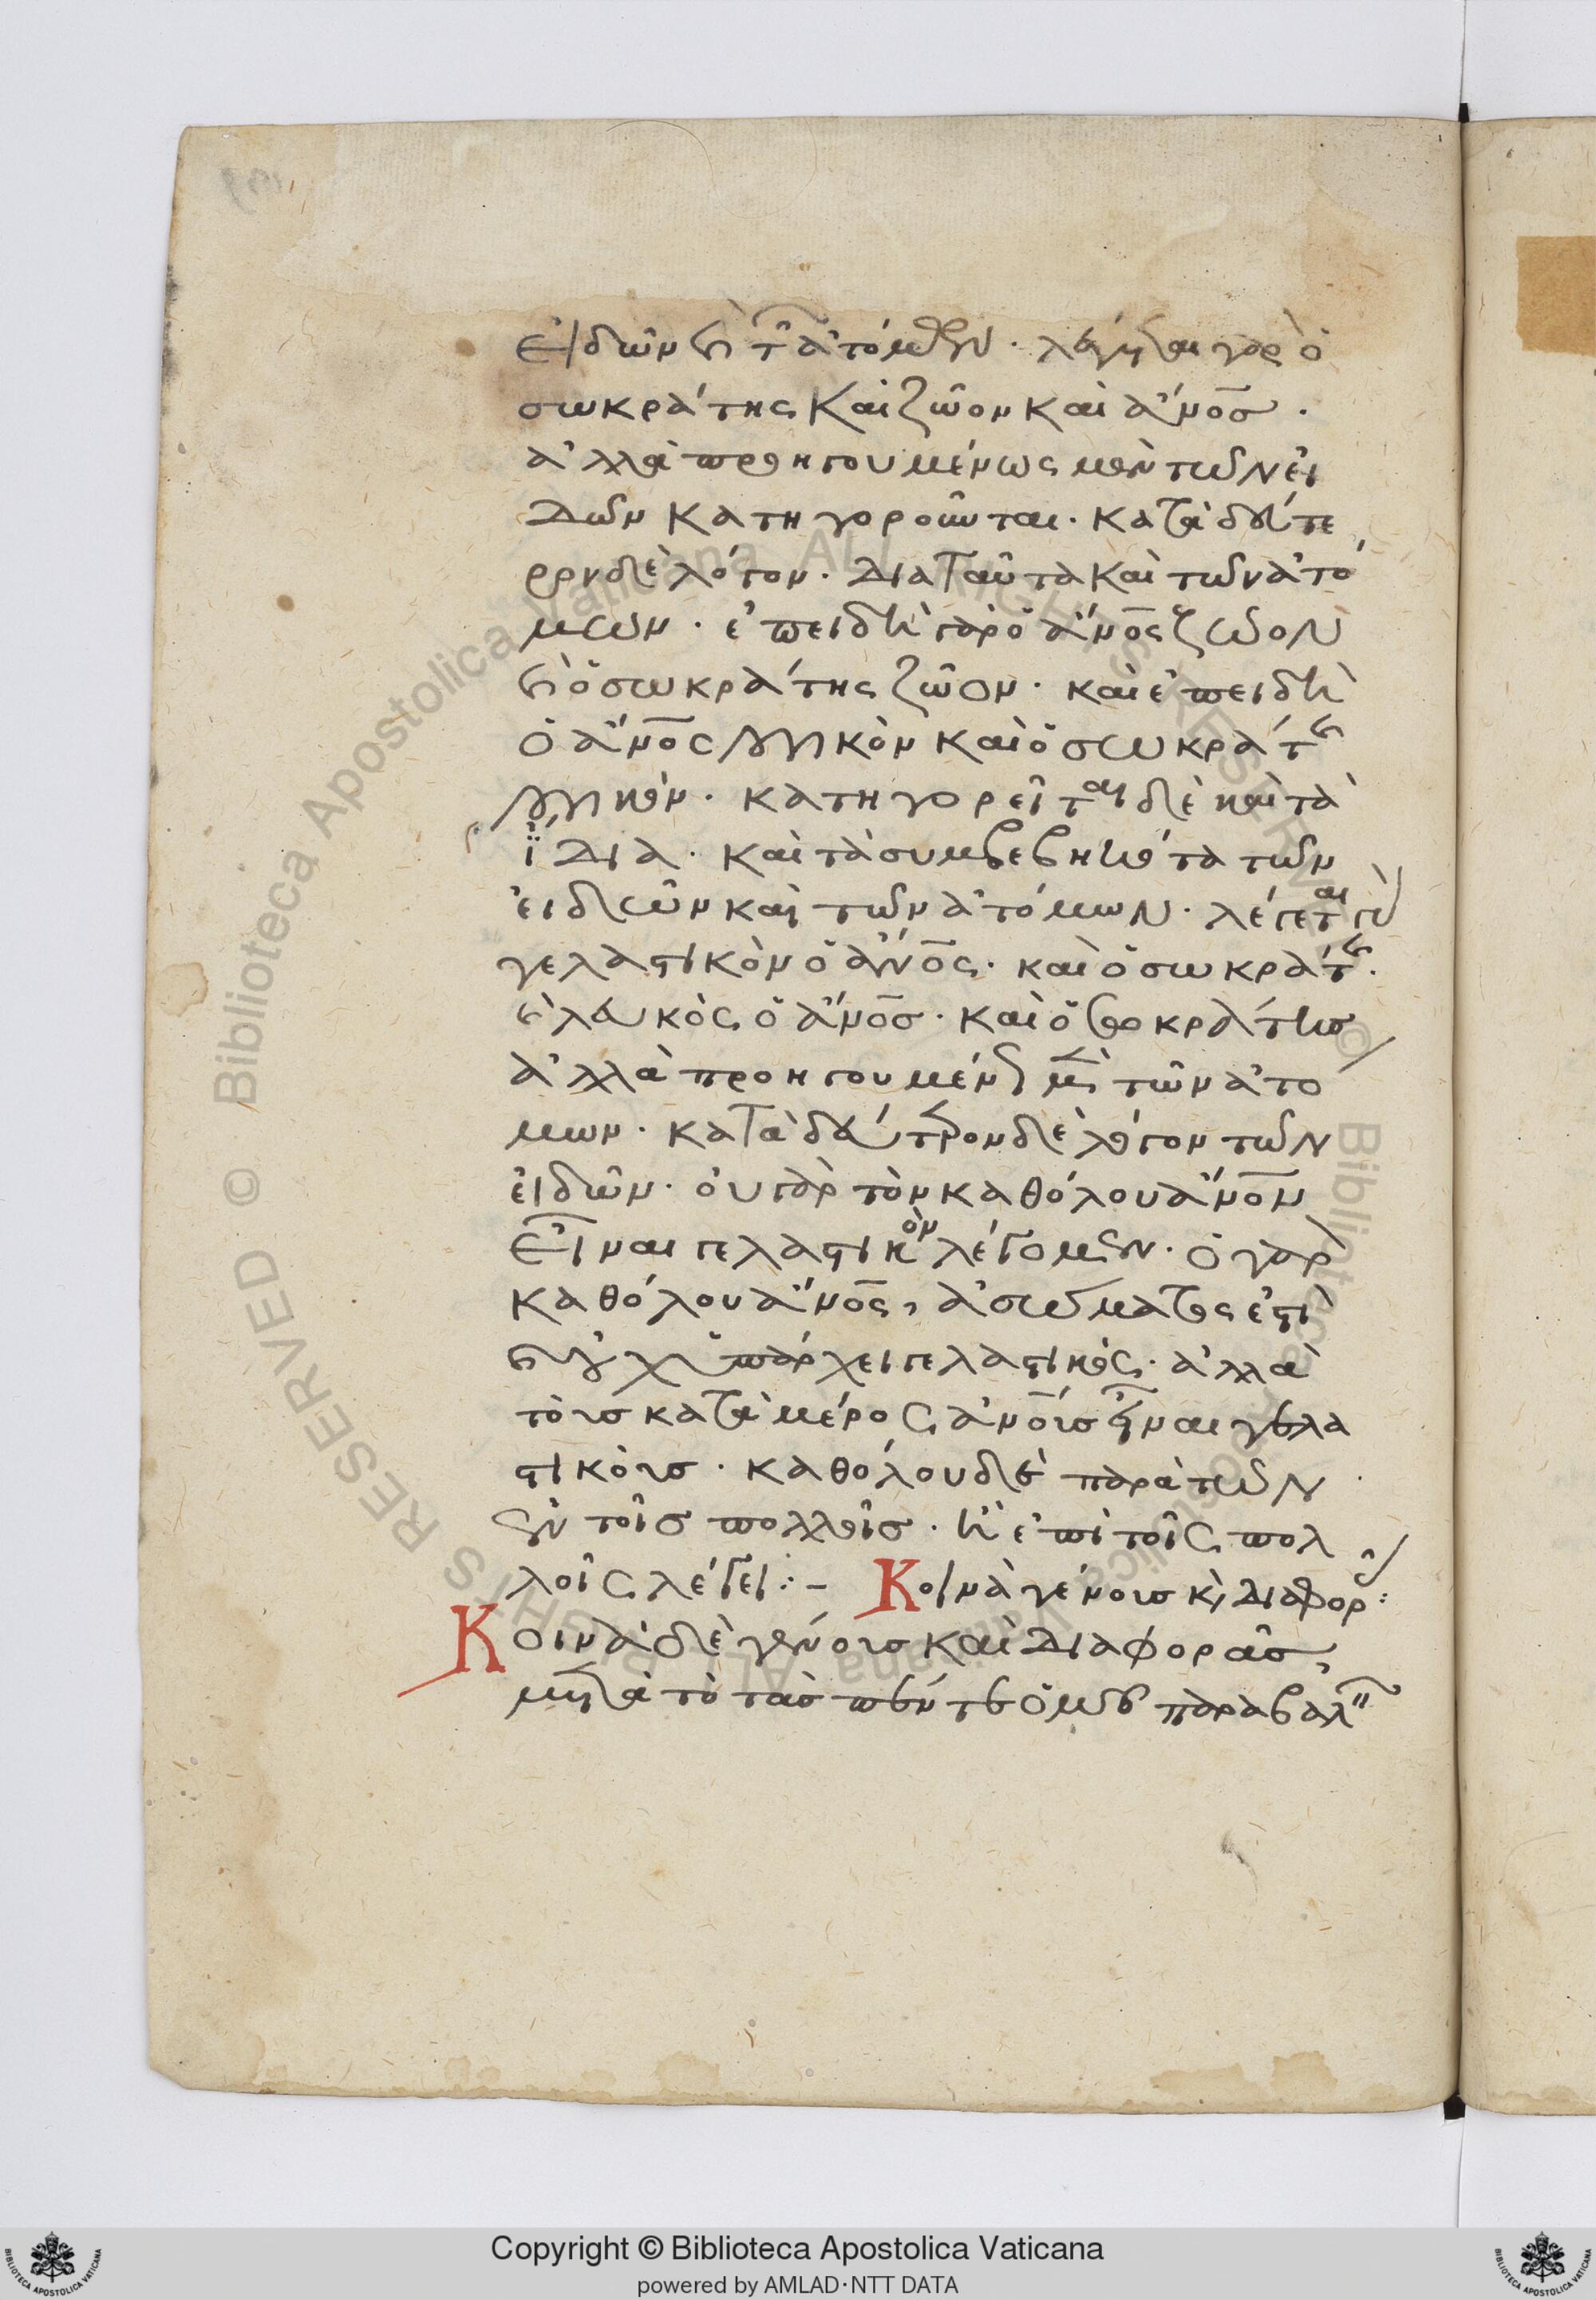 εἰδῶν καὶ τῶν ἀτόμων · λέγεται γὰρ ὁ
σωκράτης καὶ ζῶον καὶ ἄνος ·
ἀλλὰ προηγουμένως μὲν τῶν εἰ
δῶν κατηγοροῦνται · κατὰ δεύτε
ρον δὲ λόγον · διαταῦτα καὶ τῶν ἀτό
μων · ἐπειδὴ γὰρ ὁ ἄνος ζῶον
καὶ ὁ σωκράτης ζῶον · καὶ ἐπειδὴ
ὁ ἄνος λογικὸν καὶ ὁ σωκράτης
λογικόν · κατηγορεῖται δὲ καὶ τὰ
ἴδια · καὶ τὰ συμβεβηκότα τῶν
εἰδῶν καὶ τῶν ἀτόμων · λέγεται γὰρ
γελαστικὸν ὁ ἄνος · καὶ ὁ σωκράτης ·
καὶ λευκὸς ὁ ἄνος · καὶ ὁ σωκράτης
ἀλλὰ προηγουμένως μὲν τῶν ἀτό
μων · κατὰ δεύτερον δὲ λόγον τῶν
εἰδῶν · οὐ γὰρ τὸν καθόλου ἄνον
εἶναι γελαστικὸν λέγομεν · ὁ γὰρ
καθόλου ἄνος, ἀσώματος ἐστὶ
καὶ οὐχ ὑπάρχει γελαστικός · ἀλλὰ
τοὺς κατὰ μέρος ἀνους εἶναι γελα
στικούς · καθόλου δὲ παρὰ τῶν
ἐν τοῖς πολλοῖς · ἢ ἐπὶ τοῖς πολ
λοῖς λέγει :– Κοινὰ γένους κ, διαφορᾶς :
Κοινὰ δὲ γένους καὶ διαφορᾶς,
μετὰ τὸ τὰς πέντε ὁμοῦ παραβαλεῖν